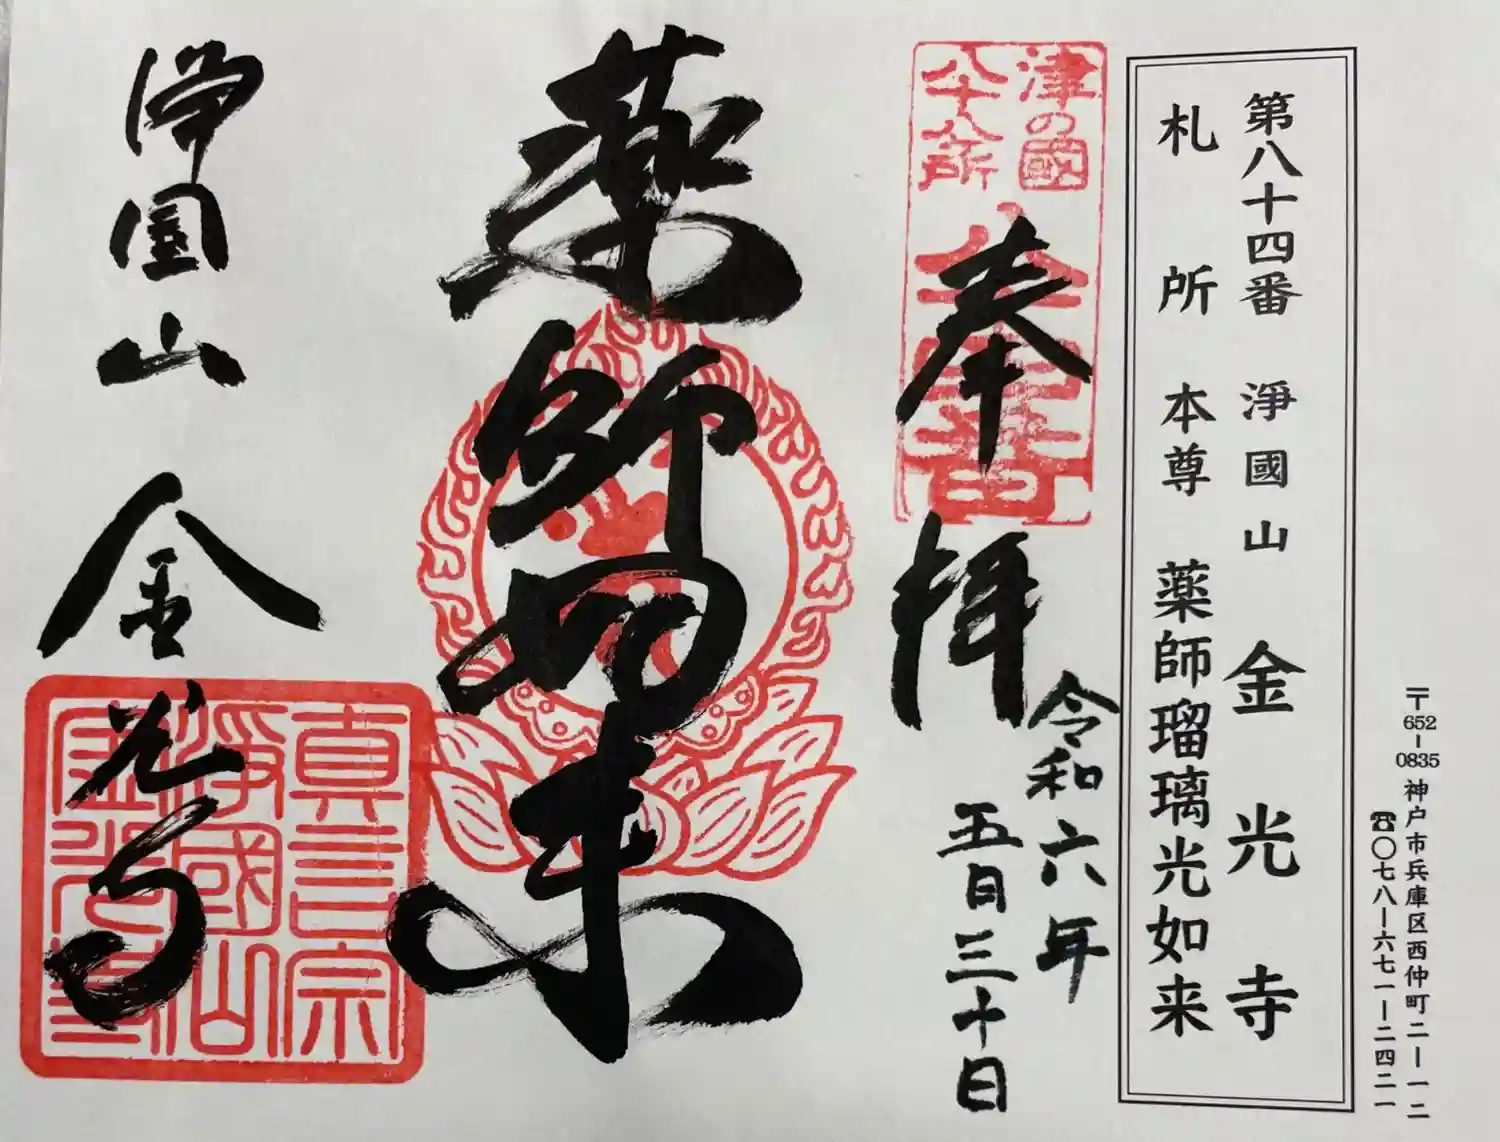 〒652-0835 神戸市兵庫区西仲町二ー一二
☎〇七八ー六七一ー二四二一
第八十四番 淨國山 金光寺
札所 本尊 薬師瑠璃光如来
津の國
八十八所
奉拝
令和六年
五月三十日
薬師如来
浄国山 金光寺
真言宗
淨國山
金光寺